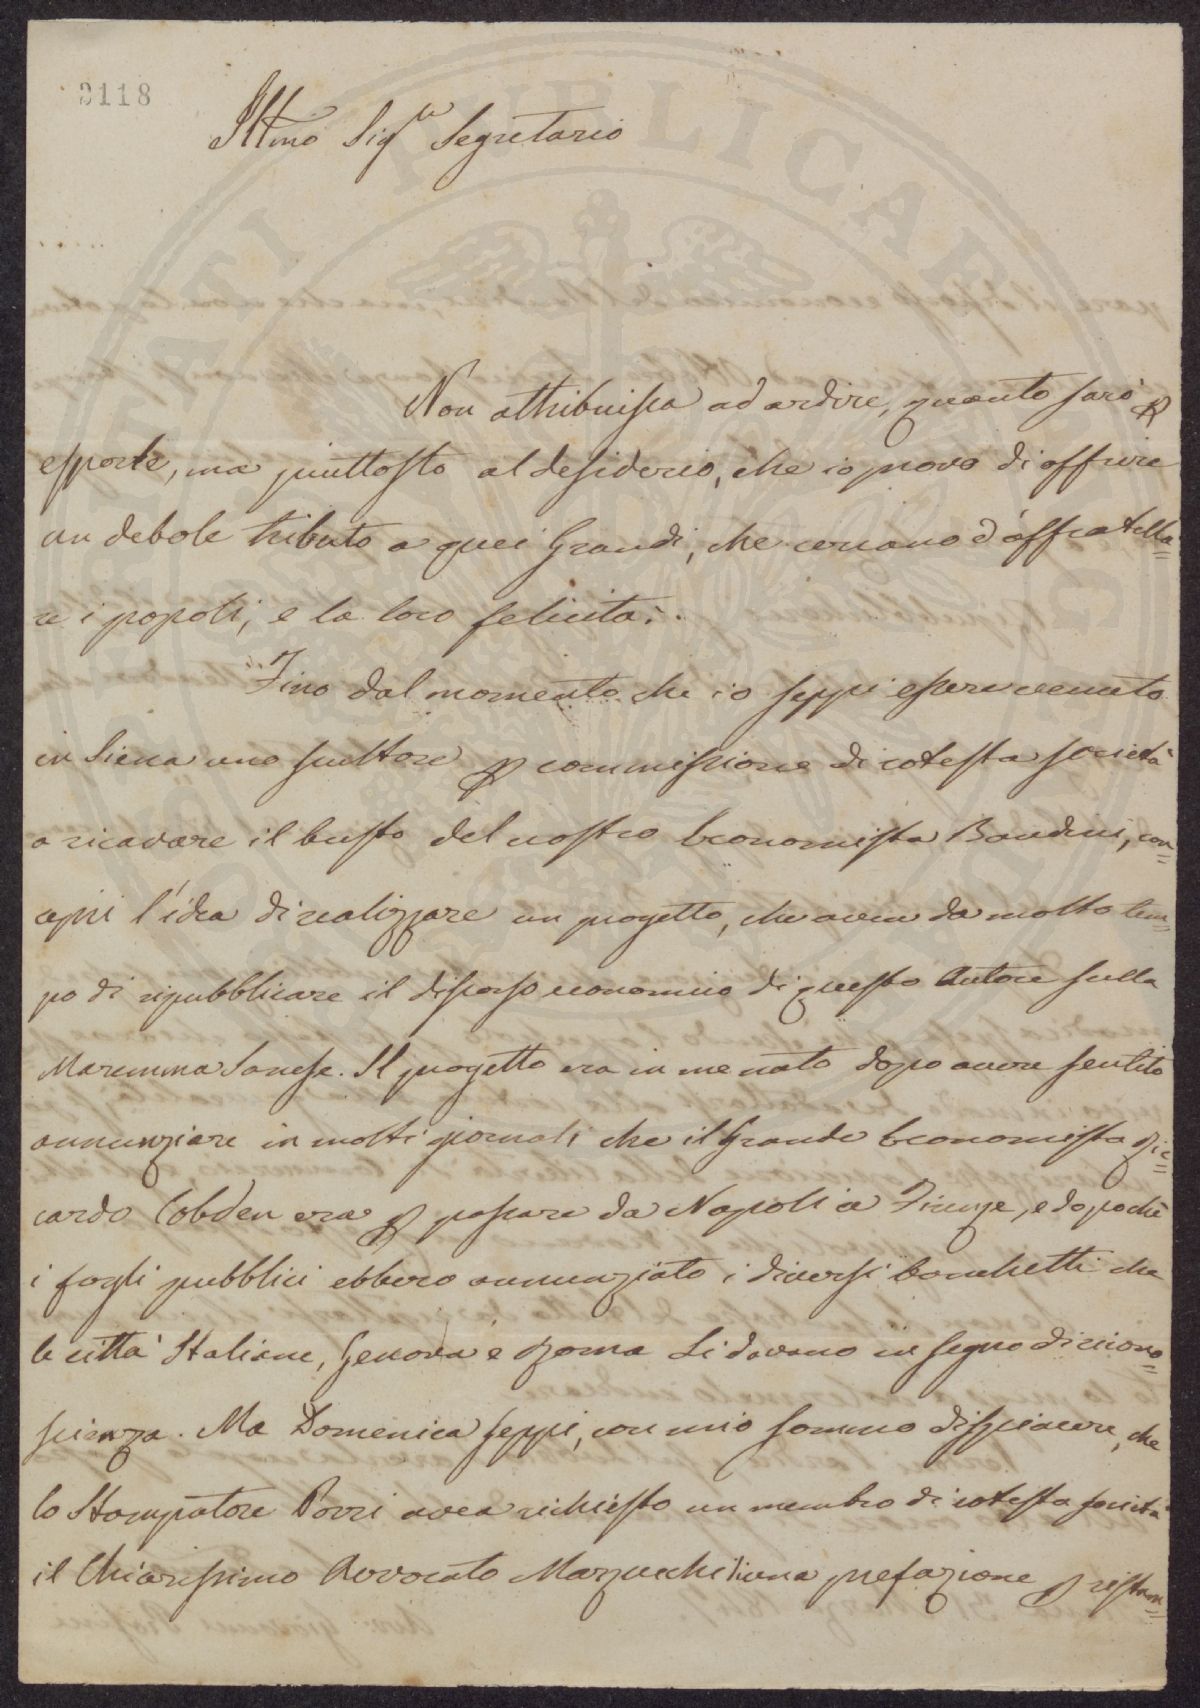 3118
Illmo Sigre Segretario
Non attribuisca ad ardire, quanto sarò p
esporle, ma piuttosto al desiderio, che io provo di offrire
un debole tributo a quei Grandi, che cercano d'affratella=
re i popoli, e la loro felicità.
Fino dal momento che io seppi essere venuto
in Siena uno scultore p commissione di cotesta società
a ricavare il busto del nostro Economista Bandini, con=
cepii l'idea di realizzare un progetto, che avea da molto tem=
po di ripubblicare il discorso economico di questo Autore sulla
Maremma Sanese. Il progetto era in me nato dopo avere sentito
annunziare in molti giornali che il Grande Economista Ric=
cardo Cobden era p passare da Napoli a Firenze, e dopochè
i fogli pubblici ebbero annunziato i diversi banchetti che
le città Italiane, Genova e Roma Li davano in segno di ricono=
scienza. Ma Domenica seppi, con mio sommo dispiacere, che
lo Stampatore Porri avea richiesto un membro di cotesta società
il Chiarissimo Avvocato Marzucchi d'una prefazione p ristam=